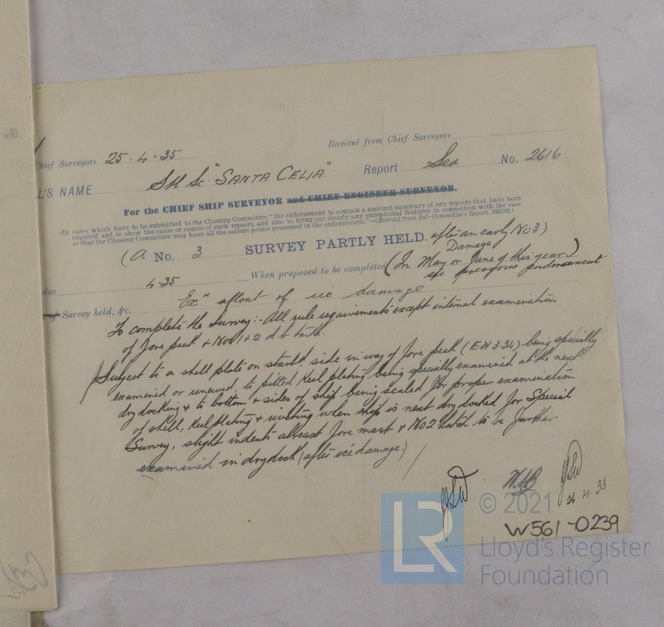 Chief Surveyors 25·4·35 Received from Chief Surveyors
L'S NAME Stl Sc. "SANTA CELIA" Report Sea No. 2616
For the CHIEF SHIP SURVEYOR and CHIEF ENGINEER SURVEYOR.
(In cases which have to be submitted to the Classing Committee "the endorsement to contain a succinct summary of any repairs that have been
required and to show the cause or causes of such repairs, and also to bring out clearly any exceptional features in connection with the case
so that the Classing Committee may have all the salient points presented in the endorsement."—(Extract from Sub-Committee's Report,
(A No. 3 SURVEY PARTLY HELD. after an early No 3)
Damage
due 4·35 When proposed to be completed (In May or June of this year)
see previous endorsement
of Survey held, &c. Ex" afloat of ice damage
To complete the Survey:- All rule requirements except internal examination
of fore peak & Nos 1 & 2 db tanks
Subject to a shell plate on starbd side in way of fore peak (EN 3·34) being specially
examined or renewed, to pitted keel plating being specially examined at the next
drydocking & to bottom & sides of ship being scaled for proper examination
of shell, keel plating & riveting when ship is next dry docked for Special
Survey, slight indents abreast fore mast & No 2 hatch to be further
examined in drydock (after ice damage.)
26.4.35
W561-0239
© 2021
LR
Lloyd's Register
Foundation